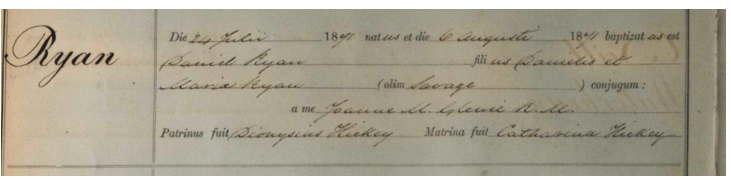 Ryan
Die 24 Julii 1871 natus et die 6 Augusti 1871 baptizatus est
Daniel Ryan filius Danielis et
Maria Ryan (olim Savage) conjugum:
a me Joanne M.
Patrinus fuit Dionysius Hickey Matrina fuit Catharina Hickey